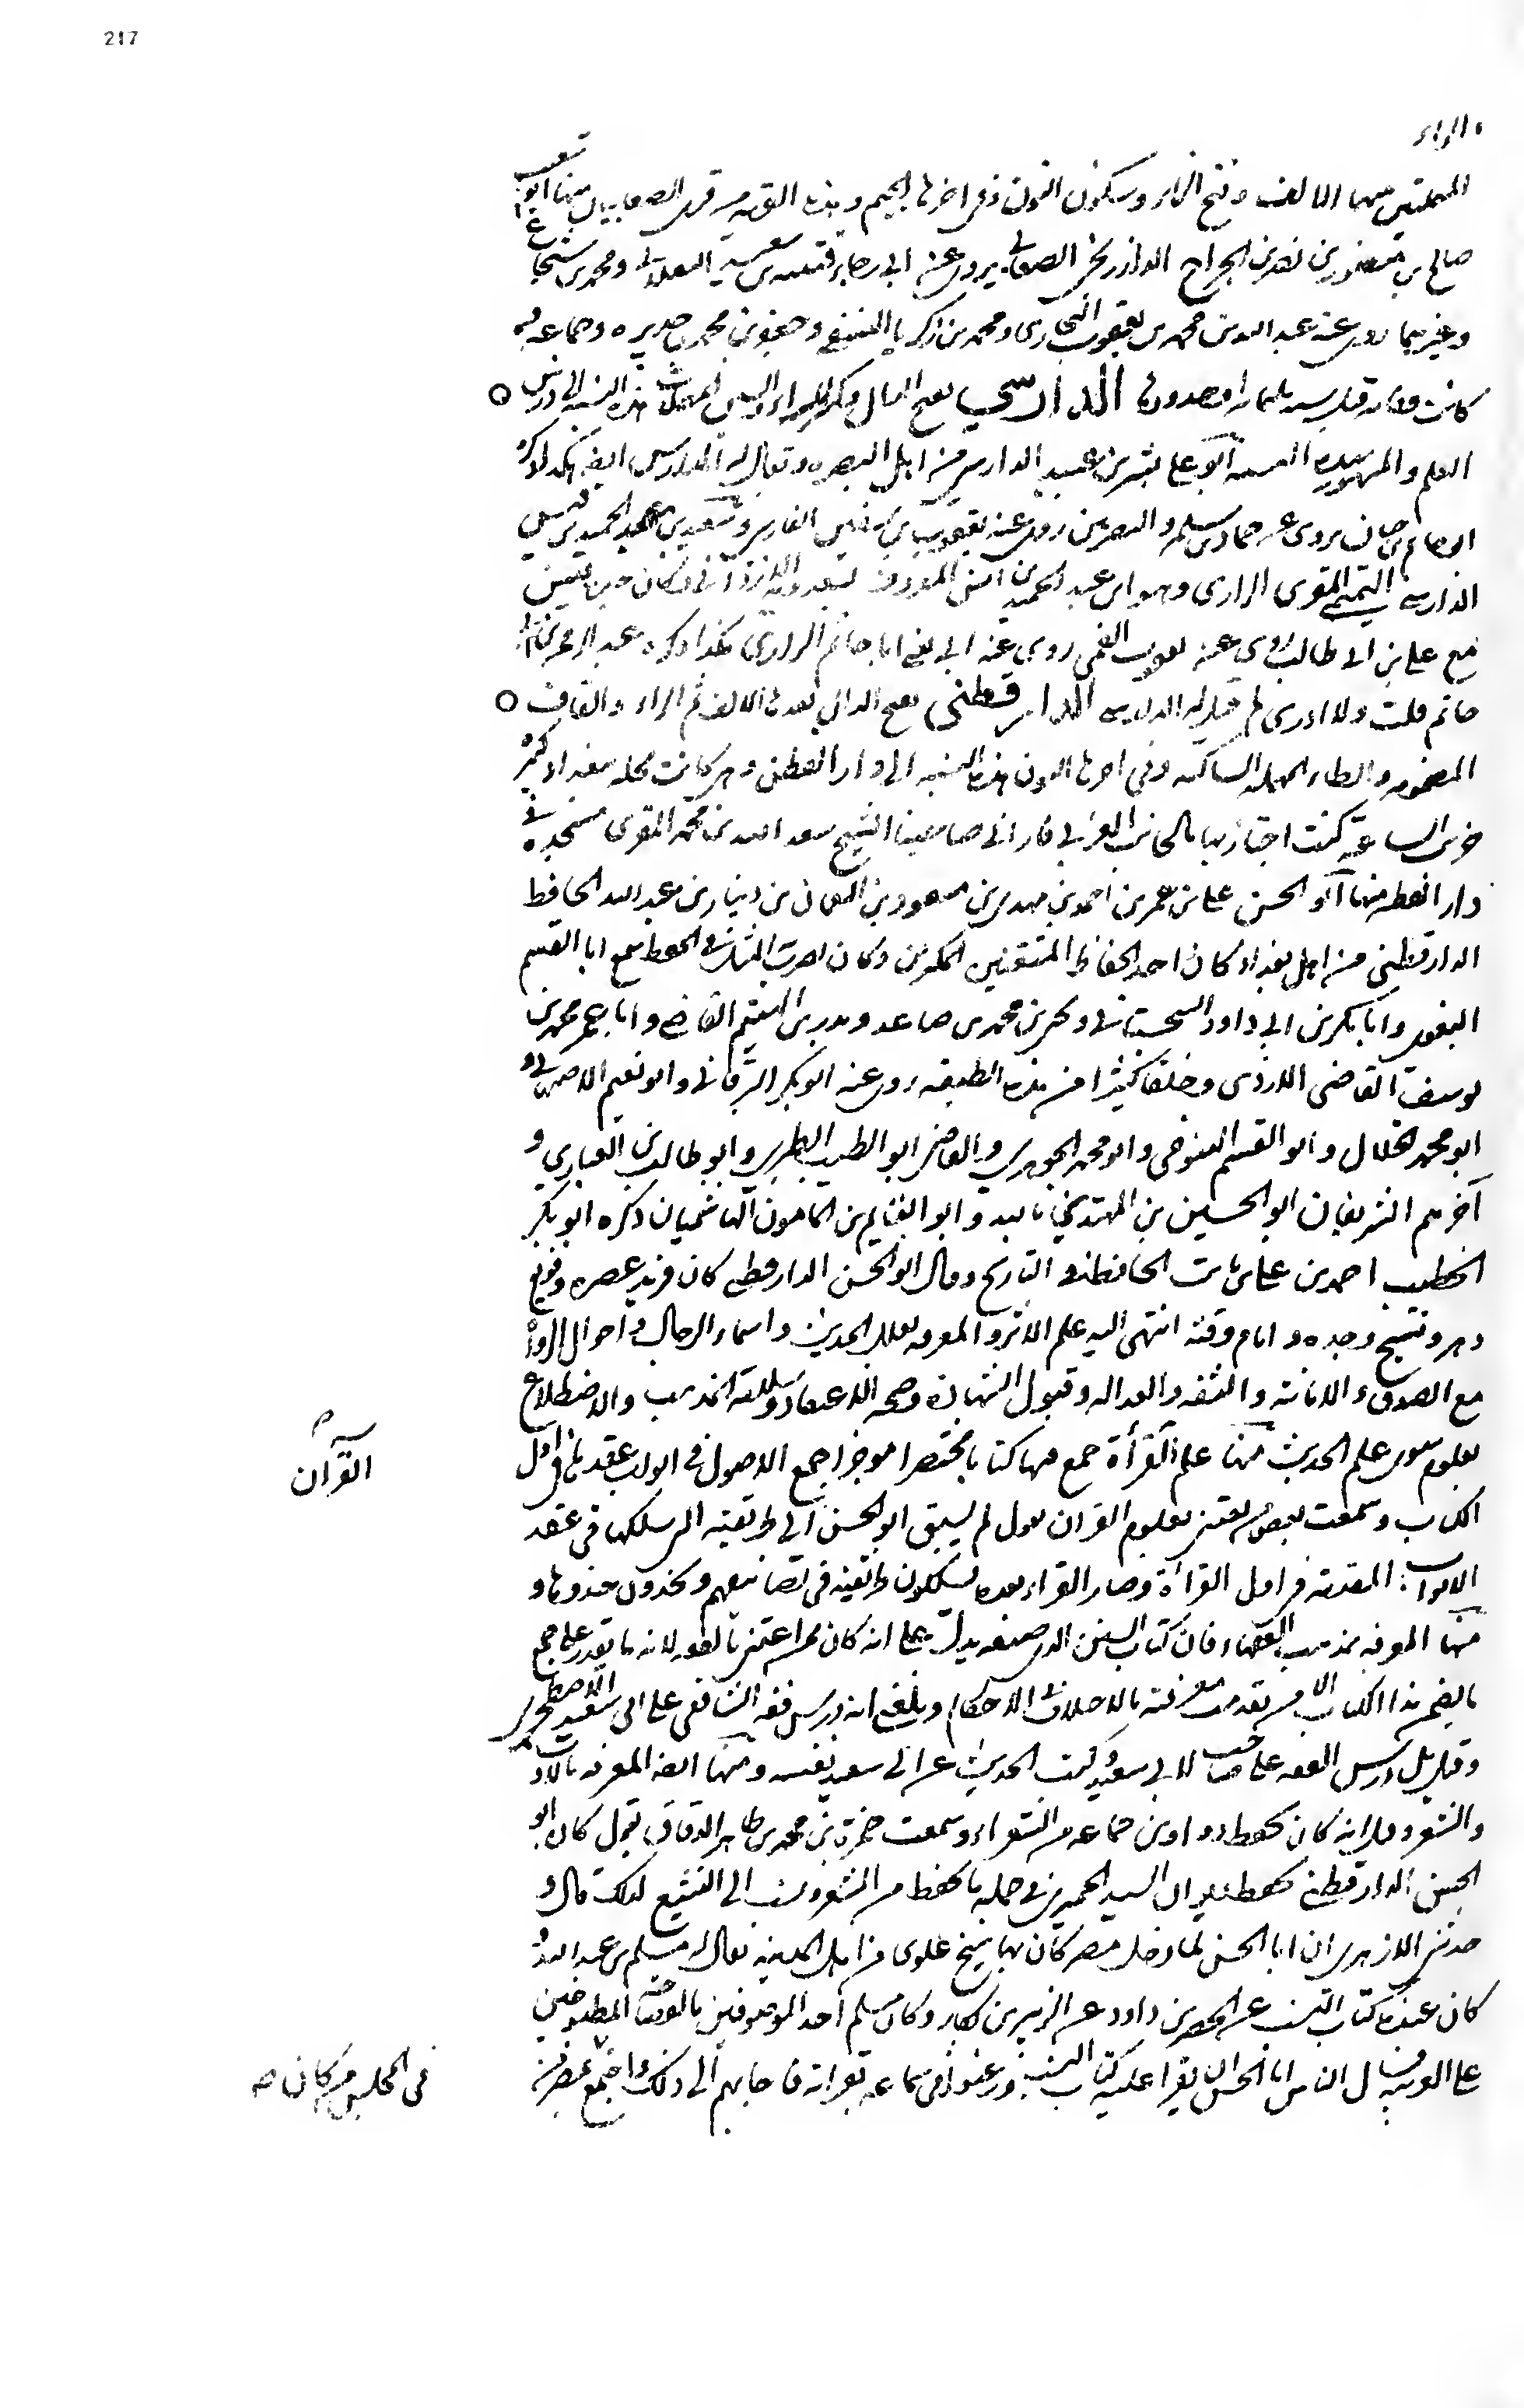 217
والراء
المهملتين بينهما الالف وفتح الزاء وسكون النون وفى اخرها الجيم وهذه القرية من قرى الصغانيان منها ابو شعيب
صالح بن منصور بن نصر بن الجراح الدارزنجى الصغانى يروى عن ابى رجاء قتيبه بن سعيد البغلانى ومحمد بن شجاع
وغيرهما روى عنه عبد الله بن محمد بن يعقوب البخارى ومحمد بن زكريا النسفى وجعفر بن محمد بن حديره وجماعه
كانت وفاته قبل سنه ثلثمايه او حدودها الدارسي بفتح الدال وكسر الراء والسين المهملات هذه النسبه الى درس
العلم والمشهور بهذه النسبه ابو على بشر بن عبيد الدارسى من اهل البصره ويقال له المدارسى ايضا هكذا ذكره
ابو حاتم بن حبان يروى عن حماد بن سلمه والبصريين روى عنه يعقوب بن سفين الفارسى وسعيد بن عبد الحميد بن قيس
الدارسى التميمى المقرى الرازى وهو ابن عبد الحميد بن انس المعروف بسعدويه وكان حين
مع على بن ابى طالب روى عن يعقوب القمى روى عنه ابى يعنى ابا حاتم الرازى هكذا ذكره عبد الرحمن بن ابى
حاتم قلت ولا ادرى لم قيل له الدارسى الدارقطنى بفتح الدال بعدها الالف ثم الراء والقاف
المضمومه والطاء المهمله الساكنه وفى اخرها النون هذه النسبه الى دار القطن وهى كانت محله ببغداد كبيره
خربت الساعه كنت اجتاز بها بالجانب الغربى فارانى صاحبنا الشيخ سعد الله بن محمد المقرى مسجده فى
دار القطن منها ابو الحسن على بن عمر بن احمد بن مهدى بن مسعود بن النعمان بن دينار بن عبد الله الحافظ
الدارقطنى من اهل بغداد كان احد الحفاظ المتقنين المكثرين وكان يضرب به المثل فى الحفظ سمع ابا القسم
البغوى وابا بكر بن ابى داود السجستانى ويحيى بن محمد بن صاعد وبدر بن الهيثم القاضى وابا عمر محمد بن
يوسف القاضى الازدى وخلقا كثيرا من هذه الطبقه روى عنه ابو بكر البرقانى وابو نعيم الاصبهانى و
ابو محمد الخلال وابو القسم التنوخى وابو محمد الجوهرى والقاضى ابو الطيب الطبرى وابو طالب بن العشارى و
آخرهم الشريفان ابو الحسين بن المهتدى بالله وابو الغنايم بن المامون الهاشميان ذكره ابو بكر
الخطيب احمد بن على بن ثابت الحافظ فى التاريخ وقال ابو الحسن الدارقطنى كان فريد عصره وقريع
دهره ونسيج وحده وامام وقته انتهى اليه علم الاثر والمعرفه بعلل الحديث واسماء الرجال واحوال الرواة
مع الصدق والامانة والثقه والعداله وقبول الشهادة وصحه الاعتقاد وسلامة المذهب والاضطلاع
بعلوم سوى علم الحديث منها علم القرأة جمع فيها كتابا مختصرا موجزا جمع الاصول فى ابواب عقدها فى اول
القرآن
الكتاب وسمعت بعض من يعتنى بعلوم القران يقول لم يسبق ابو الحسن الى طريقته التى سلكها فى عقد
الابواب المقدمة فى اول القرأة وصار القراء بعده يسلكون طريقته فى تصانيفهم ويحذون حذوها و
منها المعرفه بمذهب الفقهاء فان كتاب السنن الذى صنفه يدل على انه كان ممن اعتنى بالفقه لانه ما يقدر على جمع
ما يضمن هذا الكتاب الا من تقدمت معرفته بالاختلاف فى الاحكام وبلغنى انه درس فقه الشافعى على ابى سعيد الاصطخرى
وقيل بل درس الفقه على صاحب لابى سعيد وكتب الحديث عن ابى سعيد نفسه ومنها ايضا المعرفه بالادب
والشعر وقيل انه كان يحفظ دواوين جماعه من الشعراء وسمعت حمزة بن محمد بن طاهر الدقاق يقول كان ابو
الحسن الدارقطنى يحفظ ديوان السيد الحميرى فى جمله ما يحفظ من الشعر ونسب الى التشيع لذلك قال و
حدثنى الازهرى ان ابا الحسن لما دخل مصر كان بها شيخ علوى من اهل المدينه يقال له مسلم بن عبيد الله و
كان عنده كتاب النسب عن الخضر بن داود عن الزبير بن بكار وكان مسلم احد الموصوفين بالفصاحه المطبوعين
على العربيه فسال الناس ابا الحسن ان يقرا عليه كتاب النسب ورغبوا فى سماعه بقراته فاجابهم الى ذلك واجتمع
فى المجلس من كان صح